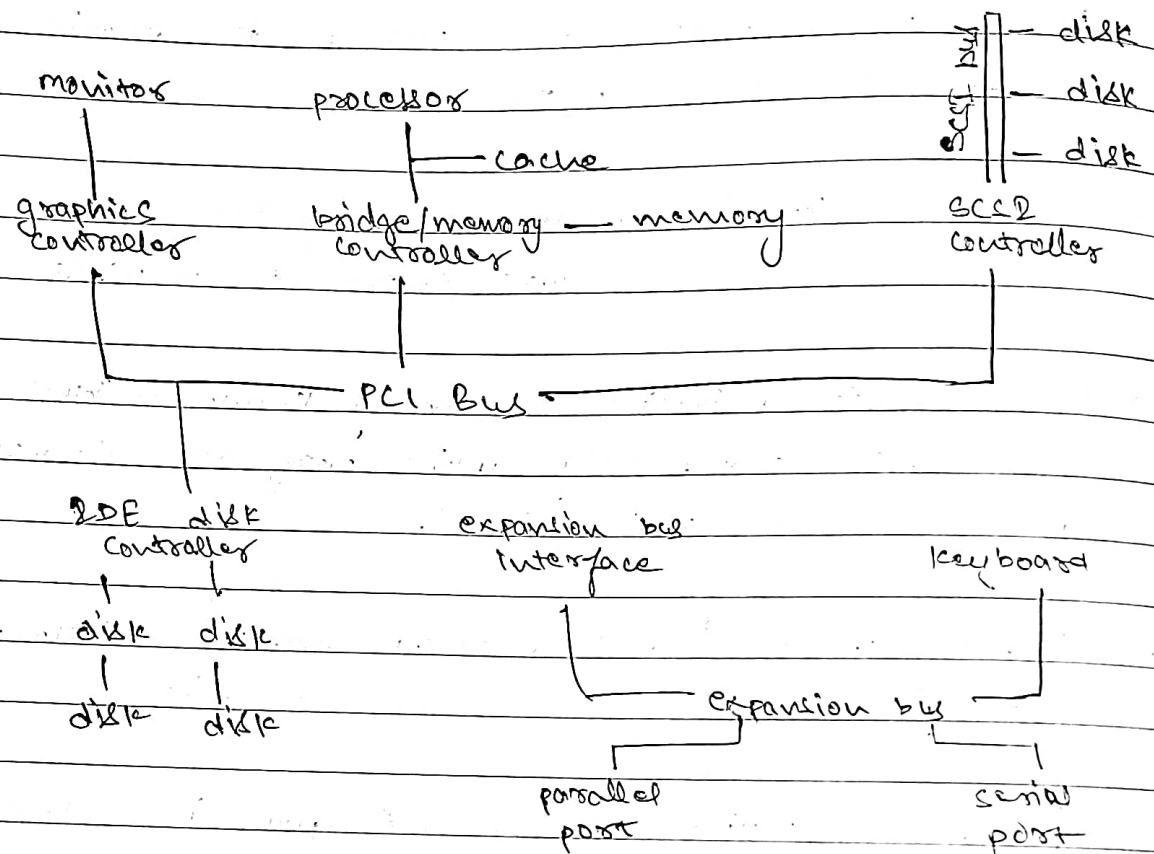 disk
SCSI bus
monitor
processor
disk
cache
disk
graphics
controller
bridge/memory
controller
memory
SCSI
controller
PCI Bus
IDE disk
controller
expansion bus
interface
keyboard
disk disk
disk disk
expansion bus
parallel
port
serial
port